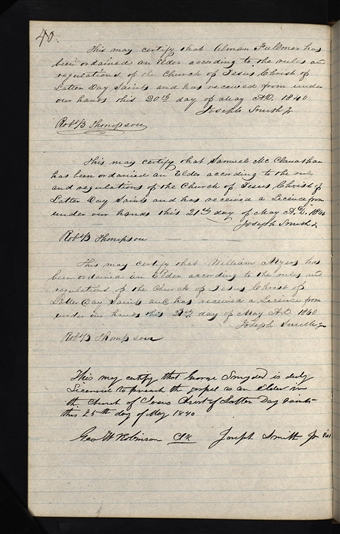 40.
This may certify that Alman Fullmer has
been ordained an Elder according to the rules and
regulations of the Church of Jesus Christ of
Latter Day Saints and has received from under
our hands this 20th day of May A.D. 1840
Joseph Smith Jr
Robt B Thompson
This may certify that Samuel Mc
has been ordained an Elder according to the rules
and regulations of the Church of Jesus Christ of
Latter Day Saints and has received a Licence from
under our hands this 21st day of May A.D. 1840
Joseph Smith Jr
Robt B Thompson
This may certify that William Myers has
been ordained an Elder according to the rules and
regulations of the Church of Jesus Christ of
Latter Day Saints and has received a Licence from
under our hands this day of May A.D. 1840
Joseph Smith Jr
Robt B Thompson
This may certify that George is duly
Licensed to preach the gospel as an Elder in
the Church of Jesus Christ of Latter Day Saints
this 25th day of May 1840
Geo W Robinson Clk Joseph Smith Jr